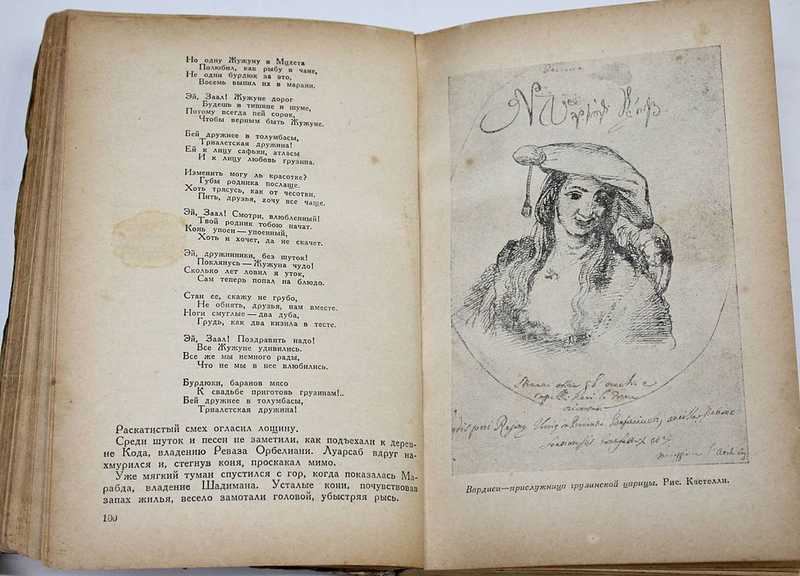 Но одну Жужуну в Мцхета
Полюбил, как рыбу в чане,
Не одни бурдюк за это,
Восемь выпил их в марани.
Эй, Заал! Жужуне дорог
Будешь в тишине и шуме,
Потому всегда пей сорок,
Чтобы верным быть Жужуне.
Бей дружнее в толумбасы,
Триалетская дружина!
Ей к лицу сафьян, атласы
И к лицу любовь грузина.
Изменить могу ль красотке?
Губы родника послаще.
Хоть трясусь, как от чесотки,
Пить, друзья, хочу все чаще.
Эй, Заал! Смотри, влюбленный!
Твой родник тобою начат.
Конь упоен — упоенный,
Хоть и хочет, да не скачет.
Эй, дружинники, без шуток!
Поклянусь — Жужуна чудо!
Сколько лет ловил я уток,
Сам теперь попал на блюдо.
Стан ее, скажу не грубо,
Не обнять, друзья, нам вместе.
Ноги смуглые — два дуба,
Грудь, как два кизила в тесте.
Эй, Заал! Поздравить надо!
Все Жужуне удивились.
Все же мы немного рады,
Что не мы в нее влюбились.
Бурдюки, баранов мясо
К свадьбе приготовь грузинам!..
Бей дружнее в толумбасы,
Триалетская дружина!
Раскатистый смех огласил лощину.
Среди шуток и песен не заметили, как подъехали к дерев-
не Кода, владению Реваза Орбелиани. Луарсаб вдруг на-
хмурился и, стегнув коня, проскакал мимо.
Уже мягкий туман спустился с гор, когда показалась Ма-
рабда, владение Шадимана. Усталые кони, почувствовав
запах жилья, весело замотали головой, убыстряя рысь.
100
Вардиси — прислужница грузинской царицы. Рис. Кастелли.